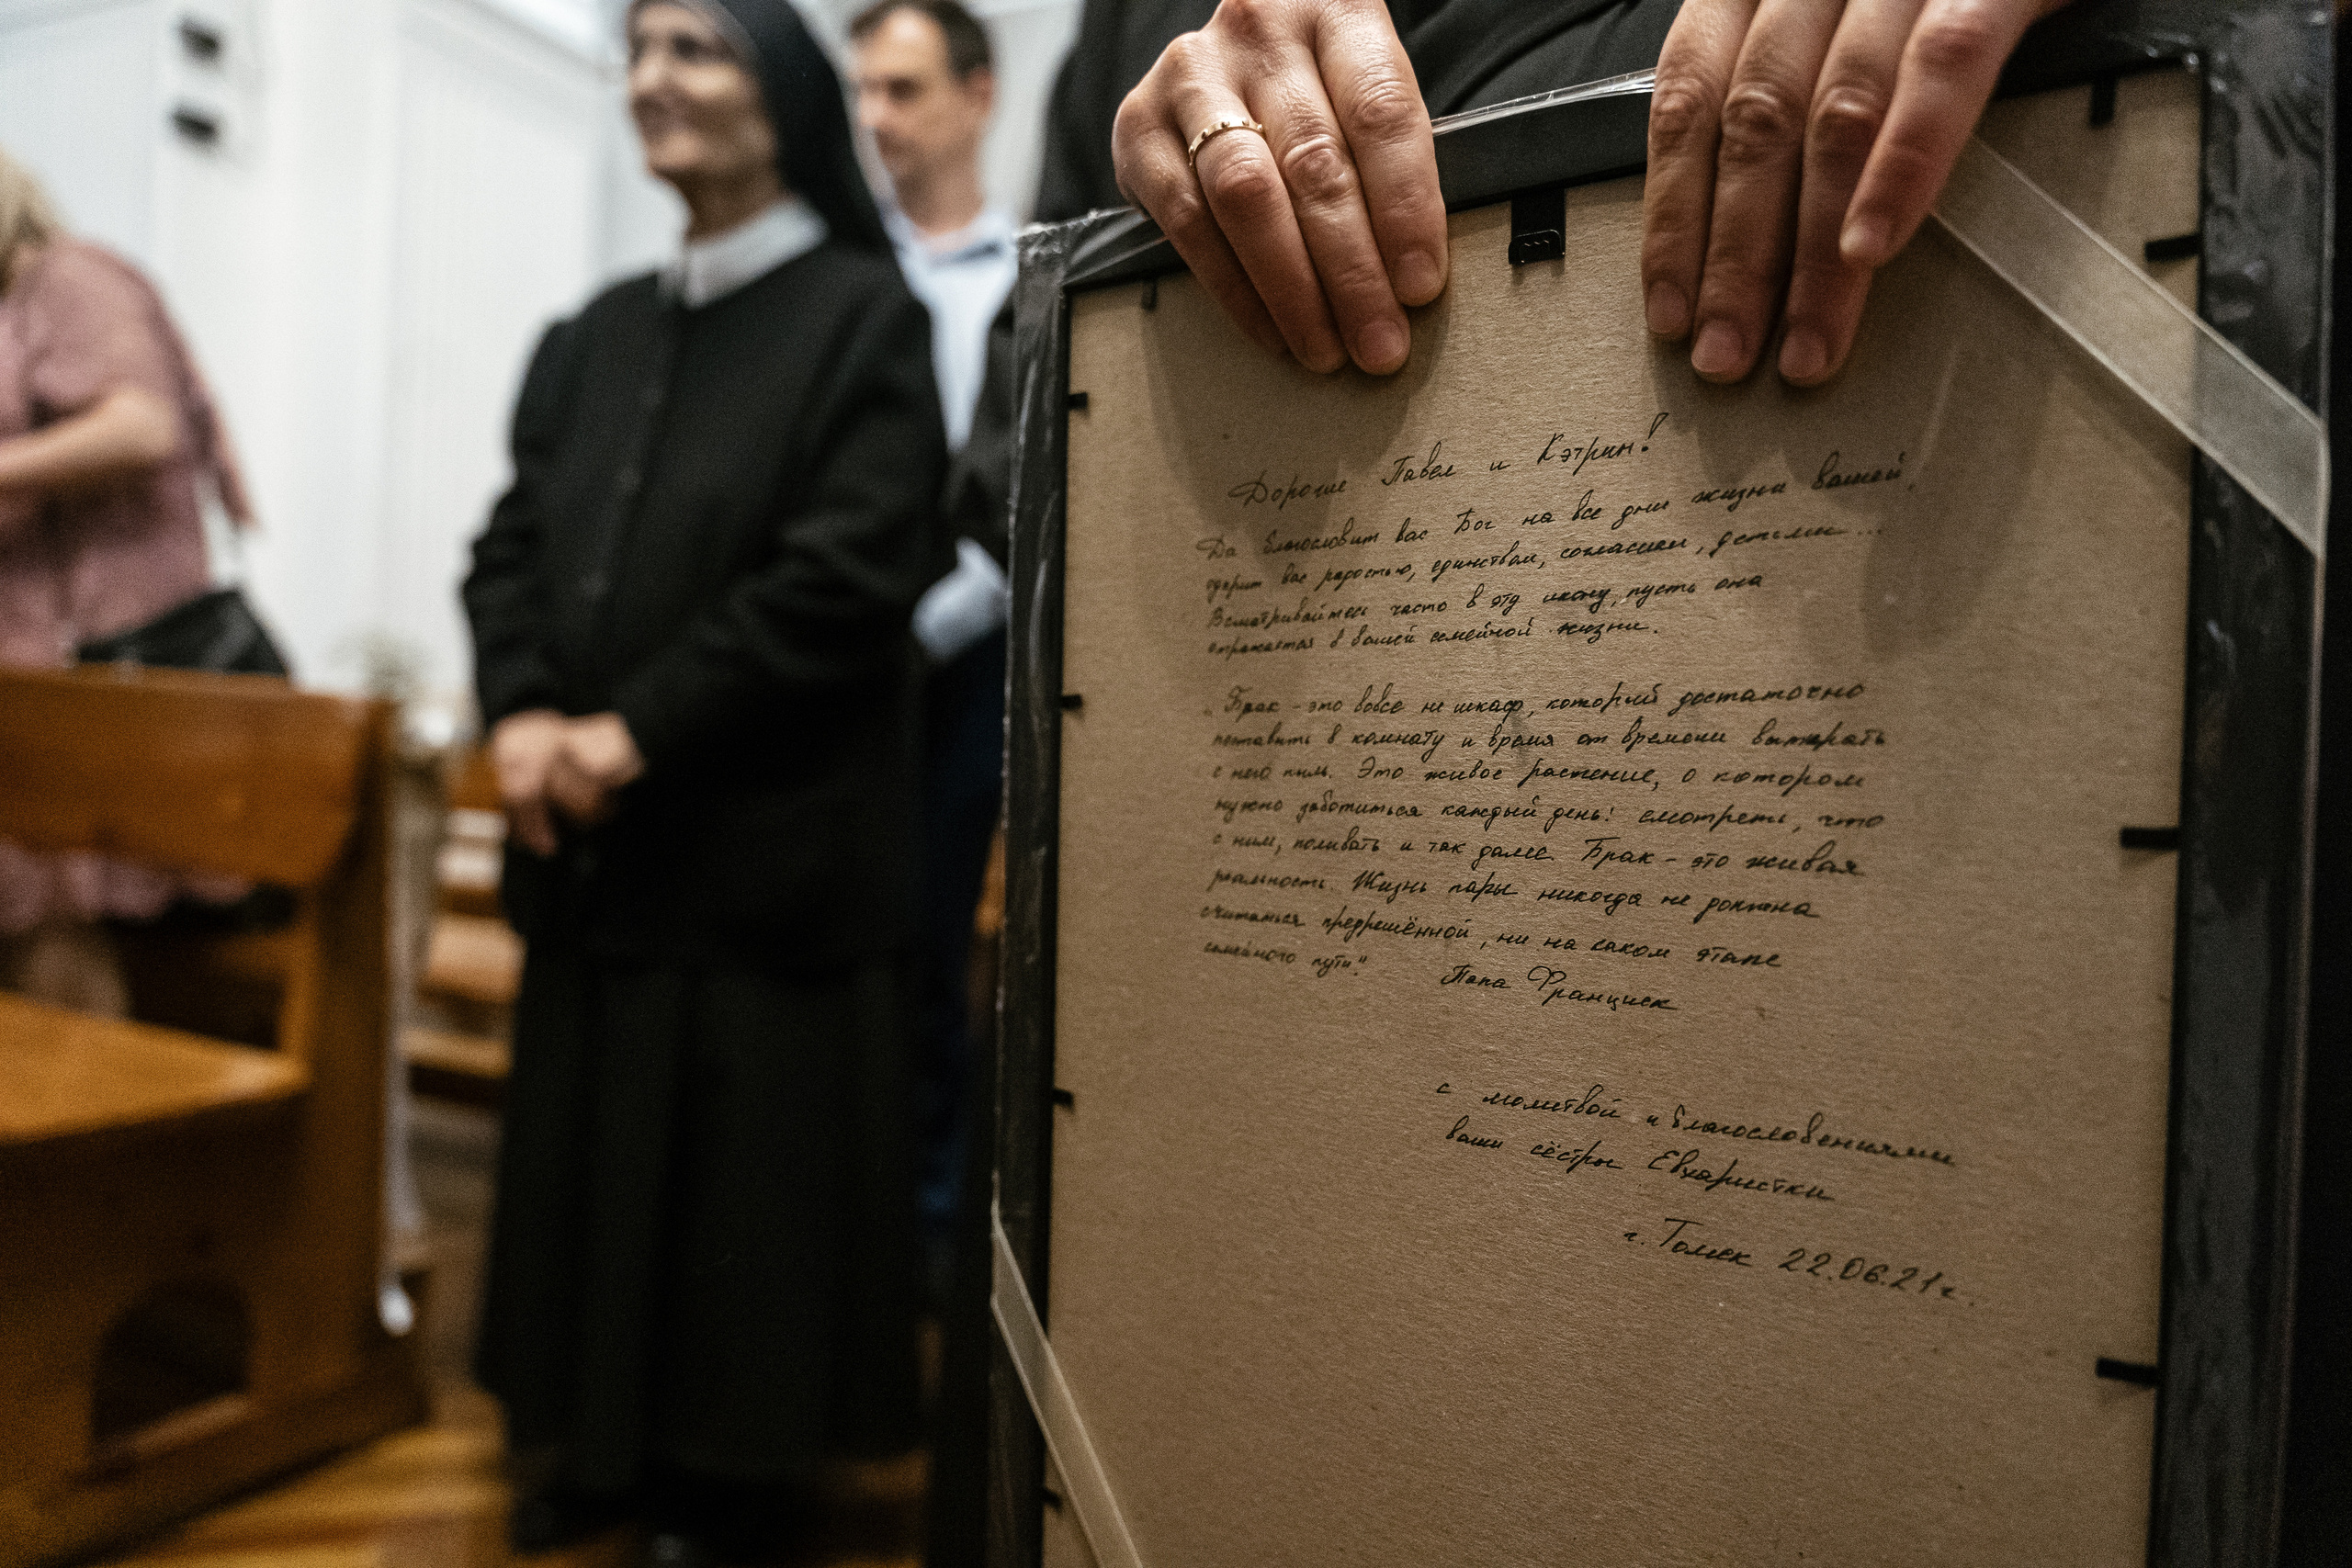 Дорогие Павел и Кэтрин!
Да благословит вас Бог на все дни жизни вашей,
одарит вас радостью, единством, согласием, детьми...
Всматривайтесь часто в эту икону, пусть она
отражается в вашей семейной жизни.
„Брак - это вовсе не шкаф, который достаточно
поставить в комнату и время от времени вытирать
с него пыль. Это живое растение, о котором
нужно заботиться каждый день: смотреть, что
с ним, поливать и так далее. Брак - это живая
реальность. Жизнь пары никогда не должна
считаться предрешённой, ни на каком этапе
семейного пути".
Папа Франциск
с молитвой и благословениями
ваши сёстры Евхаристки
г. Томск 22.06.21г.